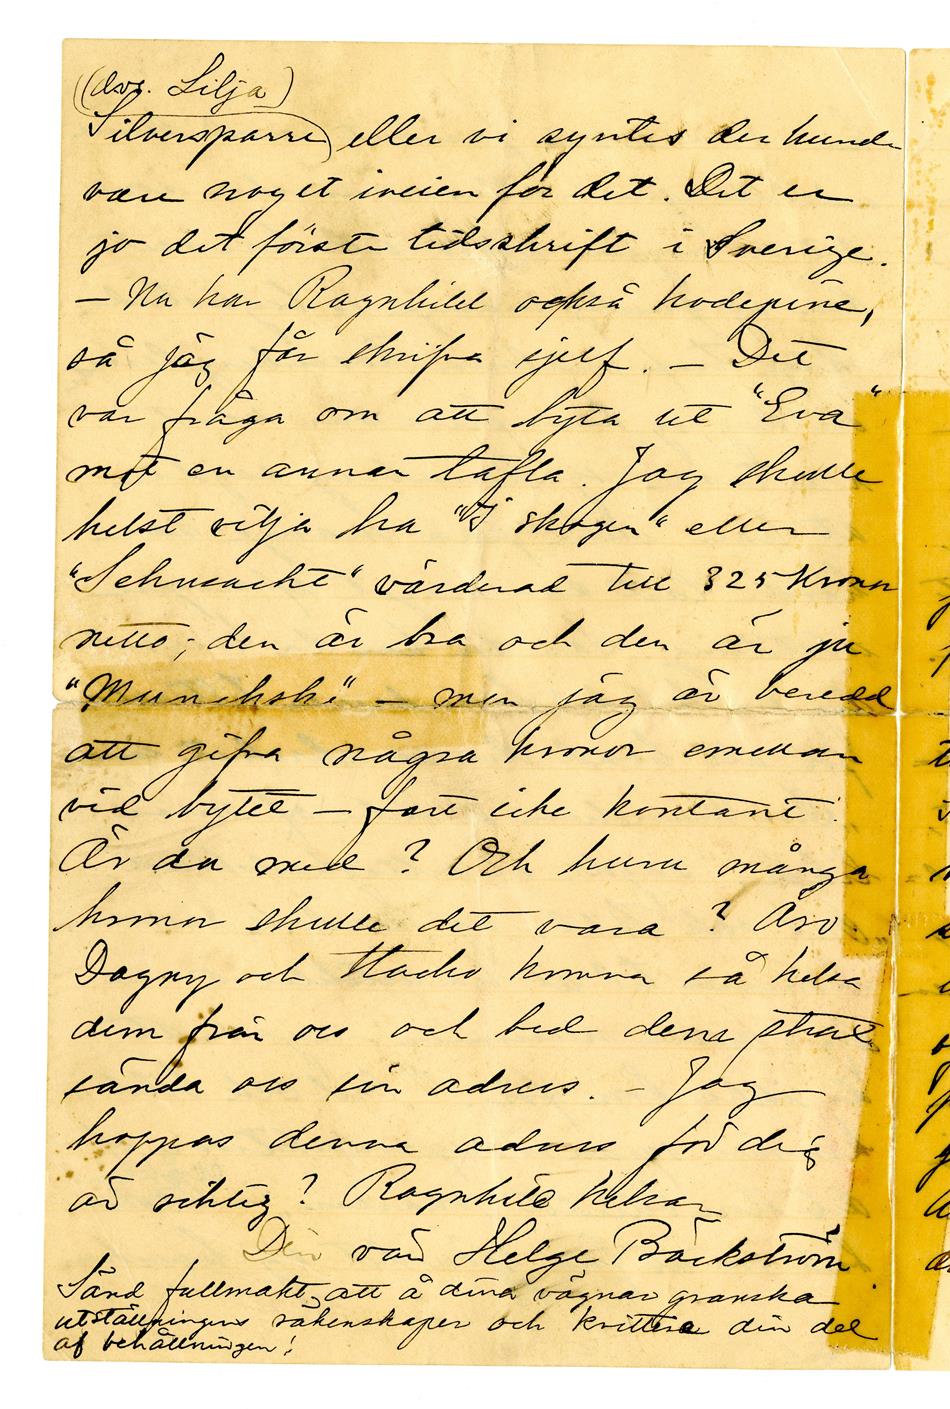 (dvs. Lilja)
Silversparre) eller vi syntes der kunde
være noget iveien for det. Det er
jo det förste tidsskrift i Sverige.
– Nu har Ragnhild også hodepine,
så jag får skrifva sjelf. – Det
var fråga om att byta ut "Eva"
mot en annan tafla. Jag skulle
helst vilja ha "I skogen" eller
"Sehnsucht" värderad till 325 Kronor
netto; den är bra och den är ju
"Munchsk" – men jag är beredd
att gifva några kronor emellan
vid bytet – fast icke kontant.
Är du med? Och huru många
kronor skulle det vara? Om
Dagny och Stachu komma så helsa
dem från oss och bed dem strax
sända oss sin adress. – Jag
hoppas denna adress för dig
är riktig? Ragnhild helsar
Din vän Helge Bäckström.
Sänd fullmakt att å dina vägnar granska
utställningens räkenskaper och kvittera din del
af behållningen!